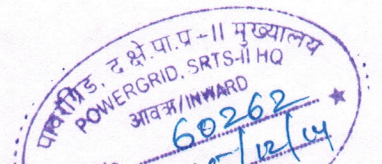 पावरग्रिड, द.क्षे.पा.प्र-II मुख्यालय
POWERGRID, SRTS-II HQ
आवक/INWARD
60262
/12/14